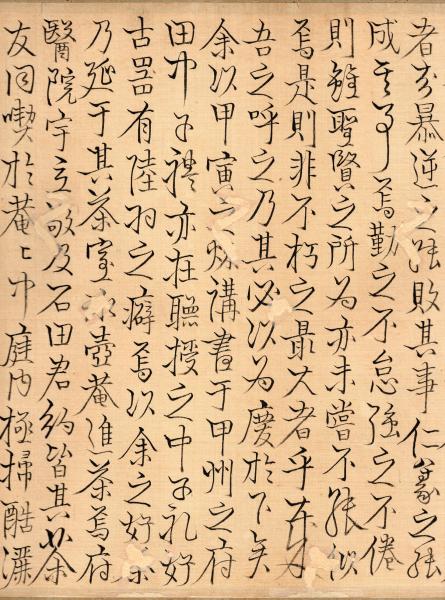 者亦暴逆之能敗其事仁義之能
成其事焉勤之不怠強之不倦
則雖聖賢之所為亦未嘗不能似
焉是則非不朽之最大者乎
吾之呼之乃其必以為慶於下矣
余以甲寅之秋講書于甲州之府
田中子禮亦在聽授之中子礼好
古器有陸羽之癖焉以余之好茶
乃延于其茶室壺菴進茶焉府
醫院宇立敬及石田君約皆其茶
友同喫於菴〻中庭内極掃酷灑